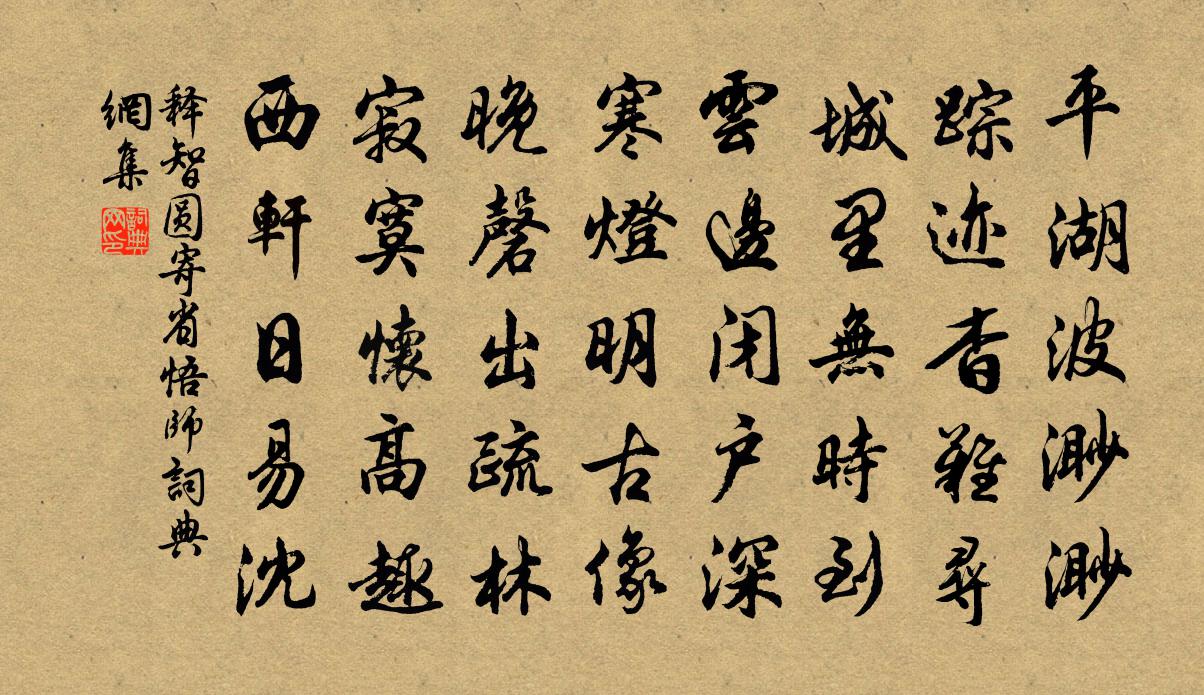 平湖波渺渺
踪迹杳難尋
城里無時到
雲邊闭户深
寒燈明古像
晚磬出疏林
寂寞懷高趣
西軒日易沈
释智圆寄省悟師詞典
網集
詞典
网印